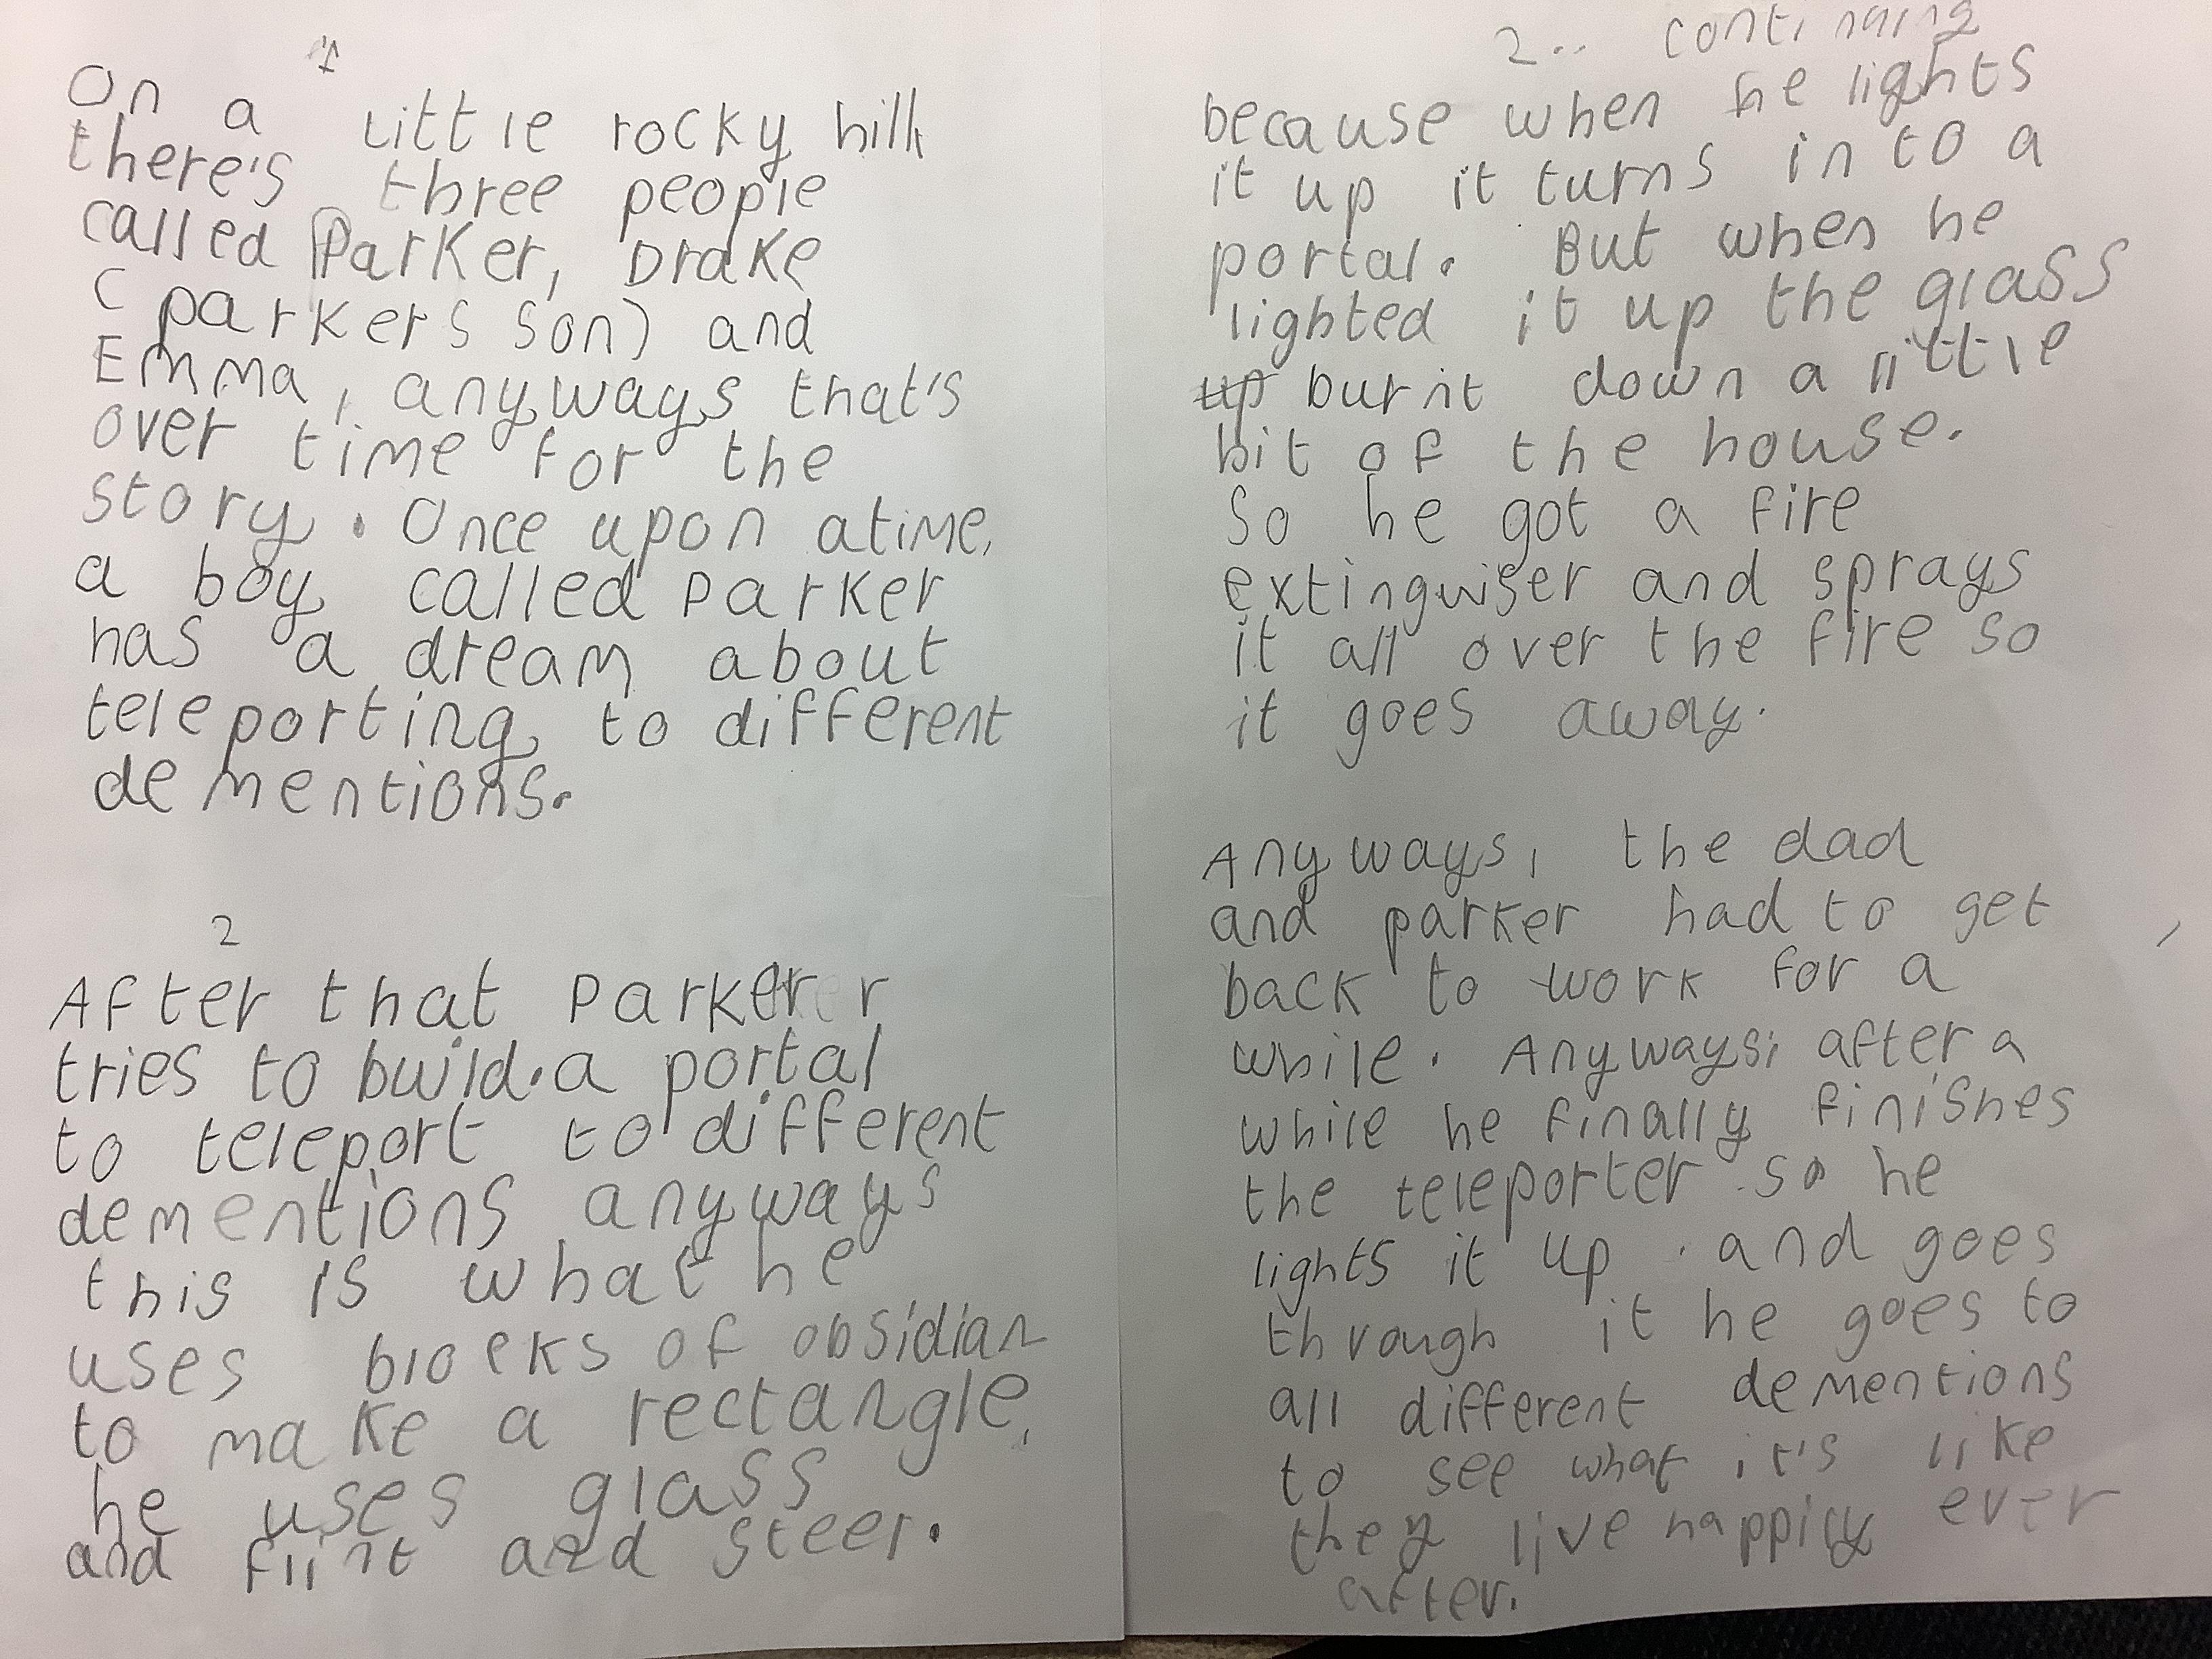 1
On a little rocky hill
there's three people
called Parker, Drake
(parkers son) and
Emma, anyways that's
over time for the
story. Once upon atime,
a boy called Parker
has a dream about
teleporting to different
dementions.
2
After that Parkerer
tries to build.a portal
to teleport to different
dementions anyways
this is what he
uses blocks of obsidian
to make a rectangle,
he uses glass
and flint and steel.
2.. continuing
because when he lights
it up it turns in to a
portal. But when he
lighted it up the glass
up burnt down a little
bit of the house.
So he got a fire
extinguiser and sprays
it all over the fire so
it goes away.
Anyways, the dad
and parker had to get
back to work for a
while. Anyways, after a
while he finally finishes
the teleporter so he
lights it up and goes
through it he goes to
all different dementions
to see what it's like
they live happily ever
after.